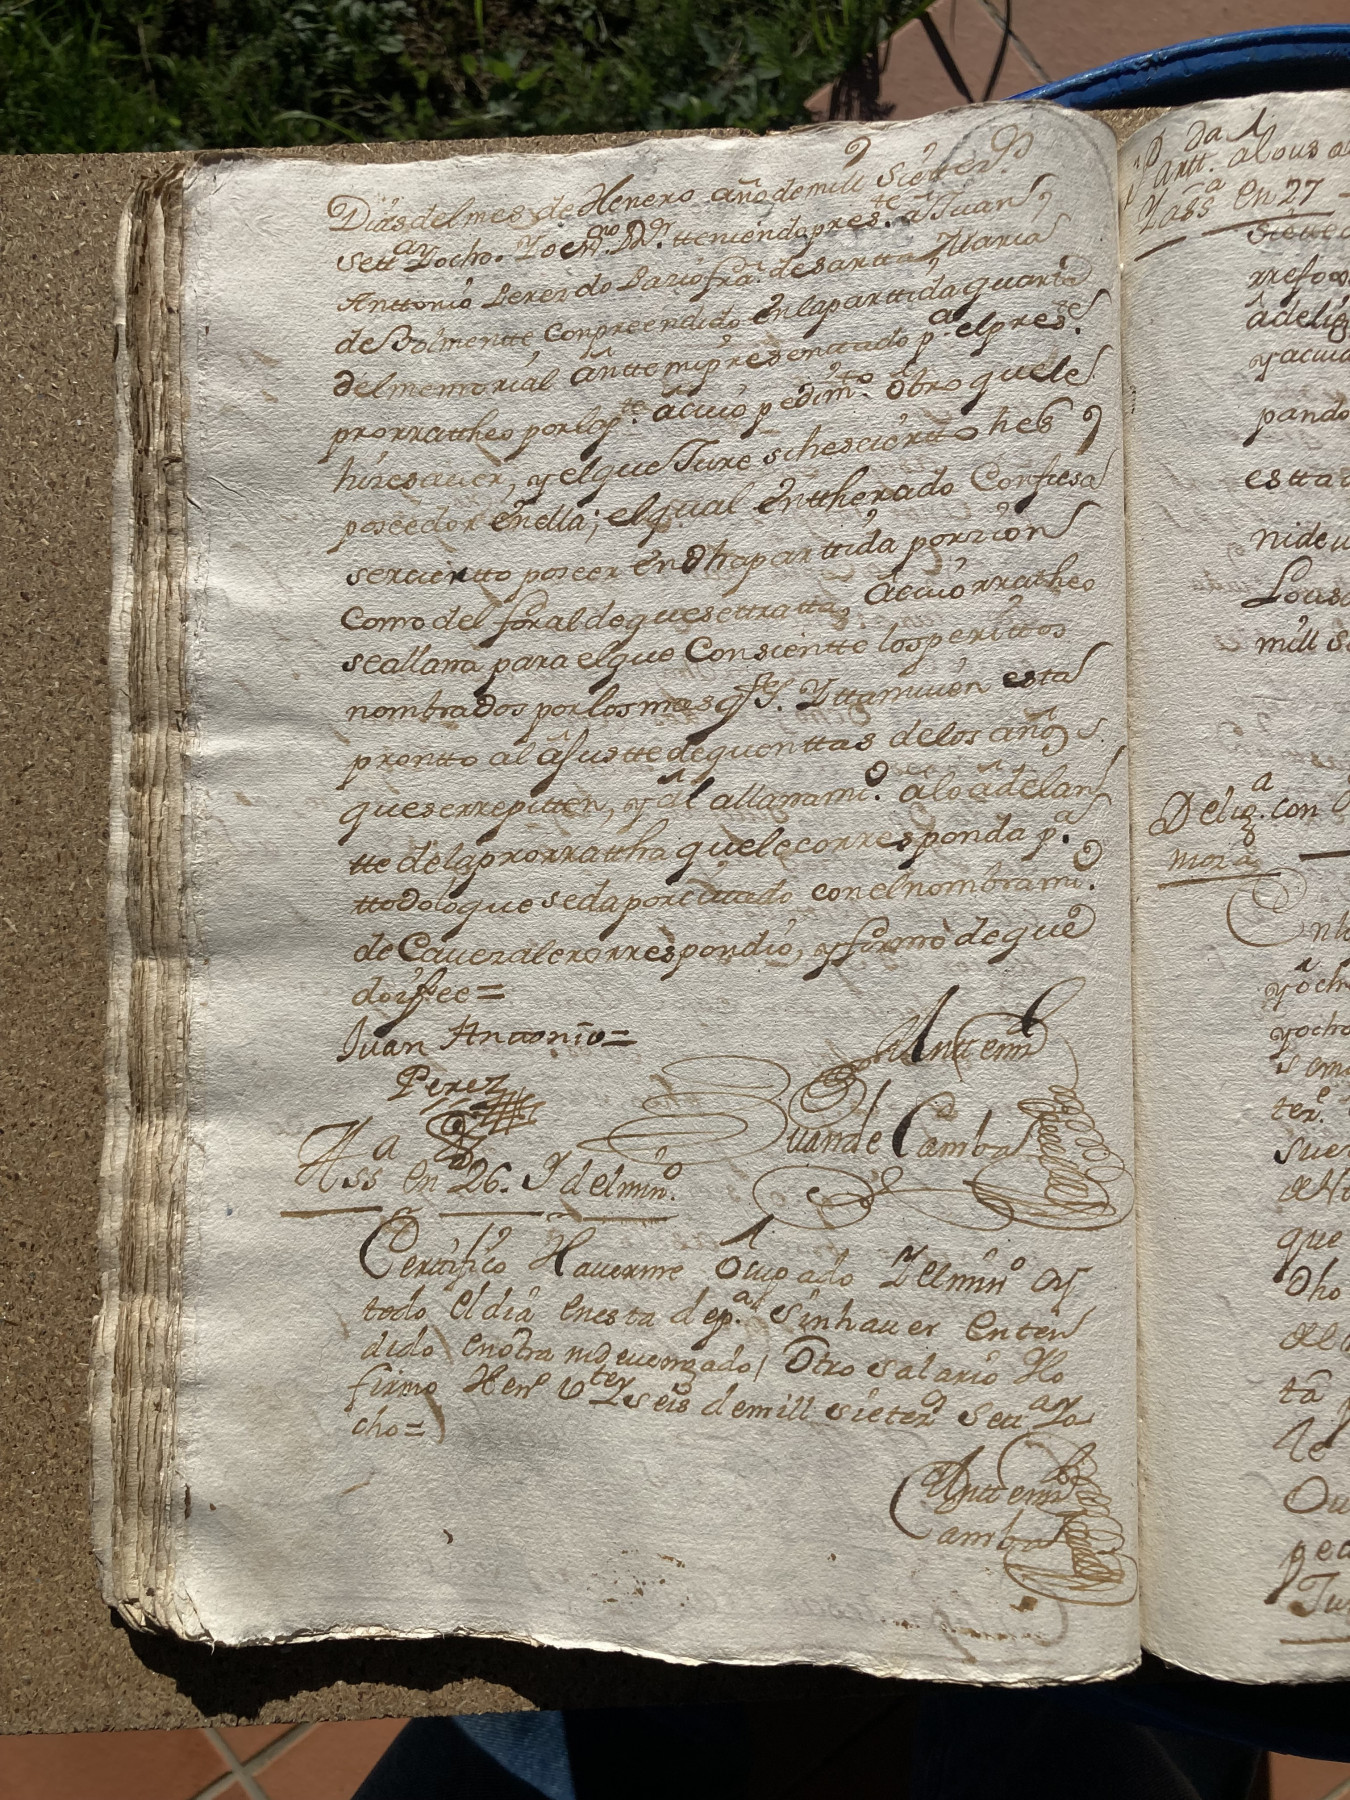 Dias del mes de Henero año de mill Sietezs.
sett.a Y ocho. Yo essno. Rr. tteniendo pres.te a Juan
Anttonio Perez do Pazo frá. de santta Maria
de Bolmentte Conpreendido en la parttida quarta
del memorial antte mi presenttado p.a el pres.te
prorratheo por lo p.te a cuio pedim.to otro que le
hize saver, y el que Jure si hes ciertto hes
poseedor en ella; el qual enttherado Confiesa
ser ciertto poseer en dha parttida porzion
Como del foral de que se ttratta, a cuio rratheo
se allana para el que Consientte los perittos
nombrados por los mas
prontto al ajuste de quenttas de los años
que se rrepitten, y al allanami.o a lo adelan
tte de la prorrattha que le corresponda p.a
ttodo lo que se da por cittado con el nombrami.o
de Cavezalero rrespondió, y firmó de que
doi fee =
Juan Antonio =
Perez
Antt emi
Juan de Camba
Ass.a en 26. Y del min.o
Certifico Haverme Ocupado Yel minno oy
todo el dia en esta dep.a sin haver enten
dido en otra ni devengado Otro salario Yo
firmo Hen.o Vte y seis de mill siete zs sett.a Yo
cho =
Antt emi
Camba
Partt. a Lousa
Y ass.a en 27
siete
rrefo
a delig
y acuia
pando
esta
ni de
Lousa
mill s
Delig.a con
mora
En la
y ocho
y ocho
s em
ter.o
suer
de N
que
Dho
de
ta
le
Ou
ped
Ju